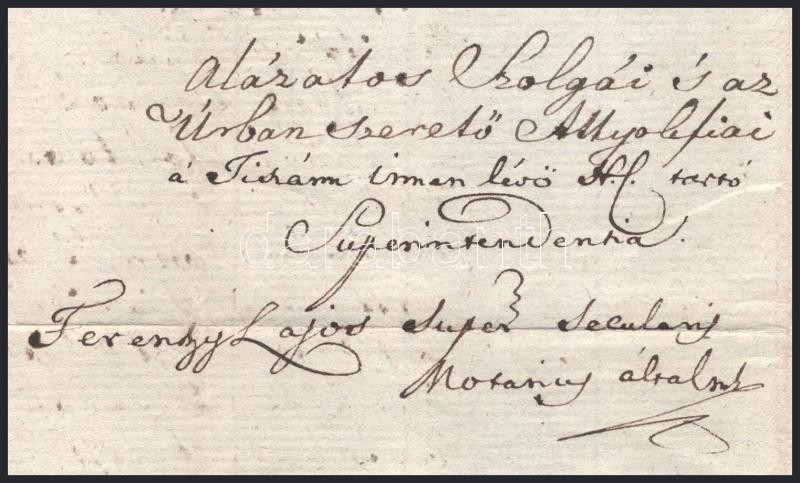 Alázatos Szolgái és az
Úrban szerető Attyokfiai
á Tiszánn innen lévö H. C. tartó
Superintendentia.
Ferenczy Lajos Super Secularis
Notarius által mk